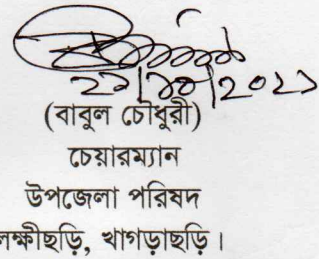 ২১/১০/২০২১
(বাবুল চৌধুরী)
চেয়ারম্যান
উপজেলা পরিষদ
লক্ষীছড়ি, খাগড়াছড়ি।